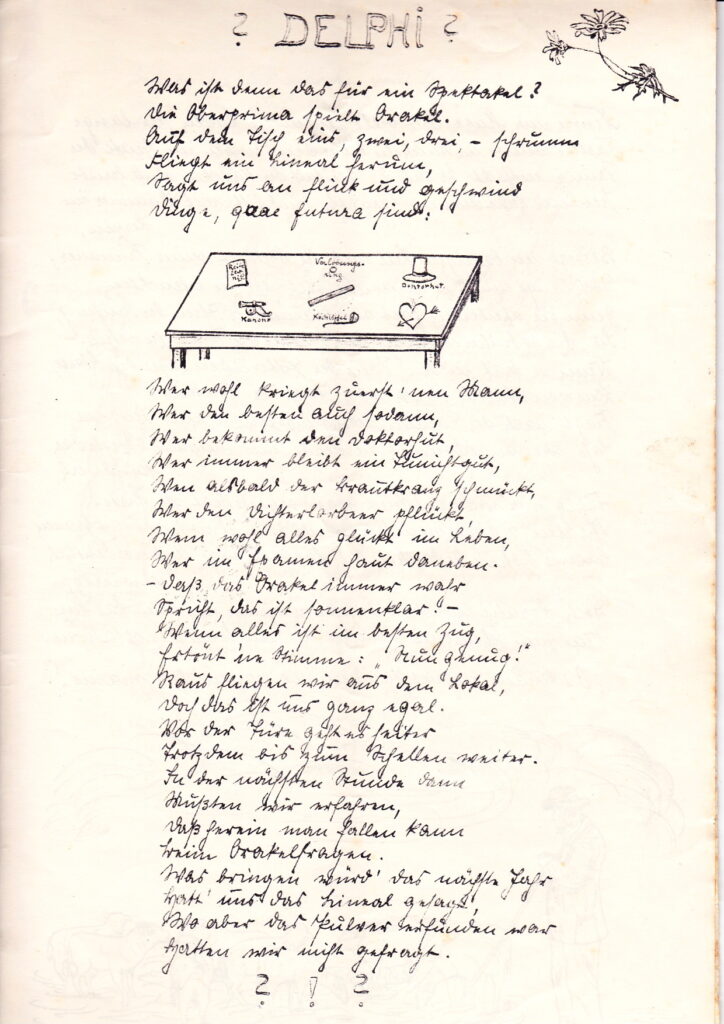 ? DELPHI ?
Was ist denn das für ein Spektakel?
Die Oberprima spielt Orakel.
Auf dem Tisch eins, zwei, drei, – schrumm
Fliegt ein Lineal herum,
Sagt uns an flink und geschwind
Dinge, quae futura sind:
Verlobungs-
ring
Doktorhut.
Kanone
Kochlöffel
Wer wohl kriegt zuerst 'nen Mann,
Wer den besten auch sodann,
Wer bekommt den Doktorhut,
Wer immer bleibt ein Tunichtgut,
Wen alsbald der Brautkranz schmückt,
Wer den Dichterlorbeer pflückt,
Wem wohl alles glückt im Leben,
Wer im Examen haut daneben.
– Daß das Orakel immer wahr
Spricht, das ist sonnenklar! –
Wenn alles ist im besten Zug,
Ertönt 'ne Stimme: „Nun genug!"
Raus fliegen wir aus dem Lokal,
Doch das ist uns ganz egal.
Vor der Türe geht es heiter
Trotzdem bis zum Schellen weiter.
In der nächsten Stunde dann
Mußten wir erfahren,
Daß herein man fallen kann
Beim Orakelfragen.
Was bringen würd' das nächste Jahr
Hatt' uns das Lineal gesagt,
Wo aber das Pulver erfunden war
Hatten wir nicht gefragt.
? ! ?